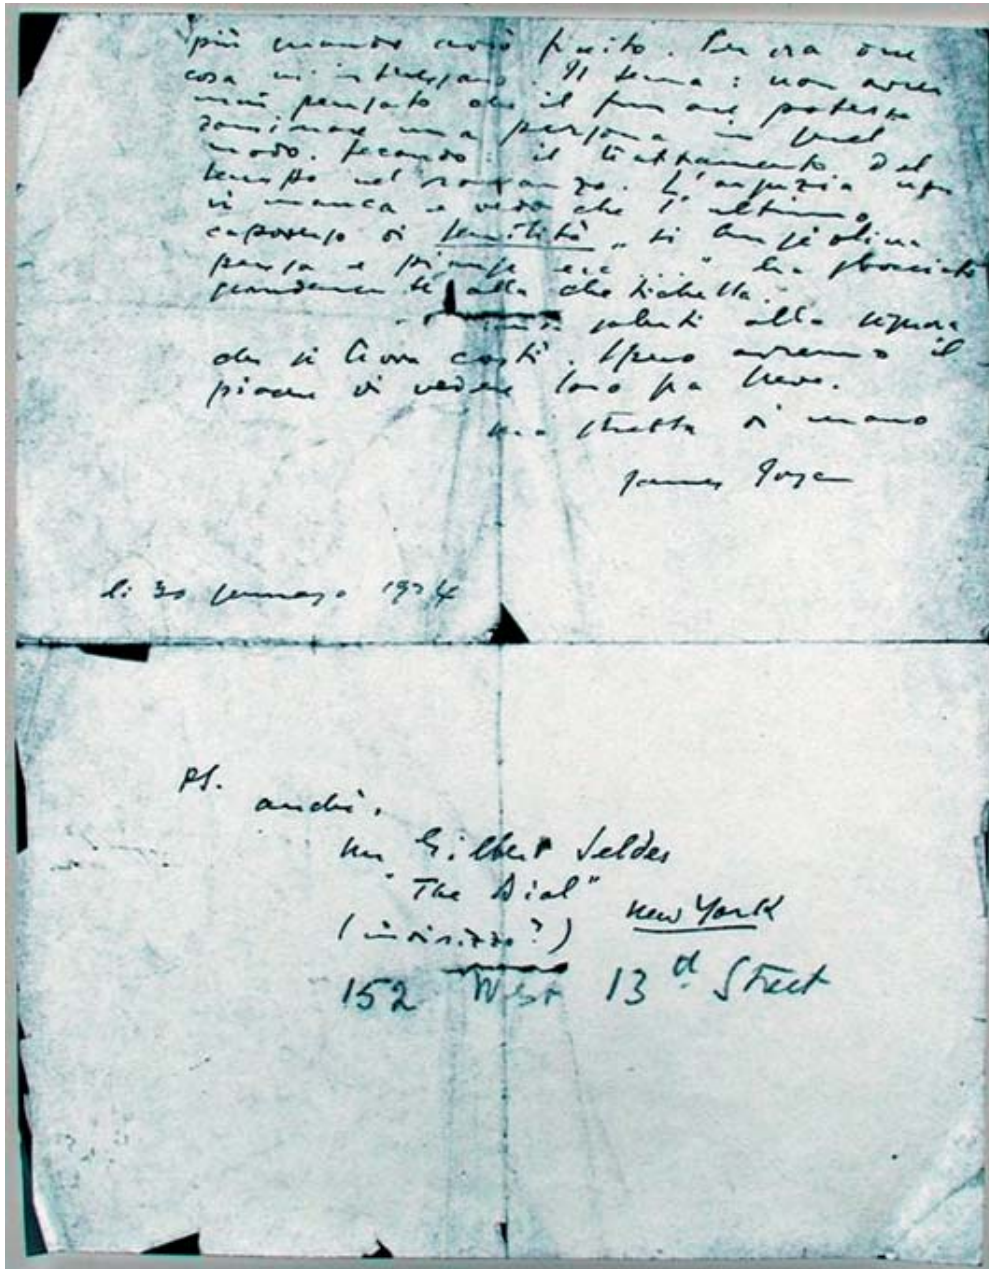 più quando avrò finito. Per ora due
cose mi interessano. Il tema: non avrei
mai pensato che il fumare potesse
dominare una persona in quel
modo. Secondo: il trattamento del
tempo nel romanzo. L'arguzia non
vi manca e vedo che l'ultimo
capoverso di Senilità „Sì Angiolina
pensa e piange ecc ...." ha sbocciato
grandemente alla chetichella.
saluti alla Signora
che si trova costì. Spero avremo il
piacere di vedere Loro fra breve.
una stretta di mano
James Joyce
li 30 gennaio 1924
PS.
anche,
Mr Gilbert Seldes
"The Dial"
New York
(indirizzo?)
152 West 13d Street